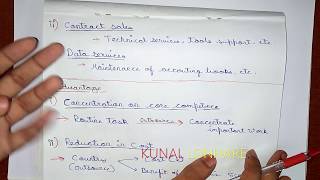 ii) Contract sales
→ Technical services, tools support, etc.
Data services
→ Maintenance of accounting books, etc.
Advantage
Concentration on core competence
→ Routine Task Outsource → Concentrate
important work
ii) Reduction in Cost
KUNAL
→ Country → Cost
(Outsource) → Benefit of